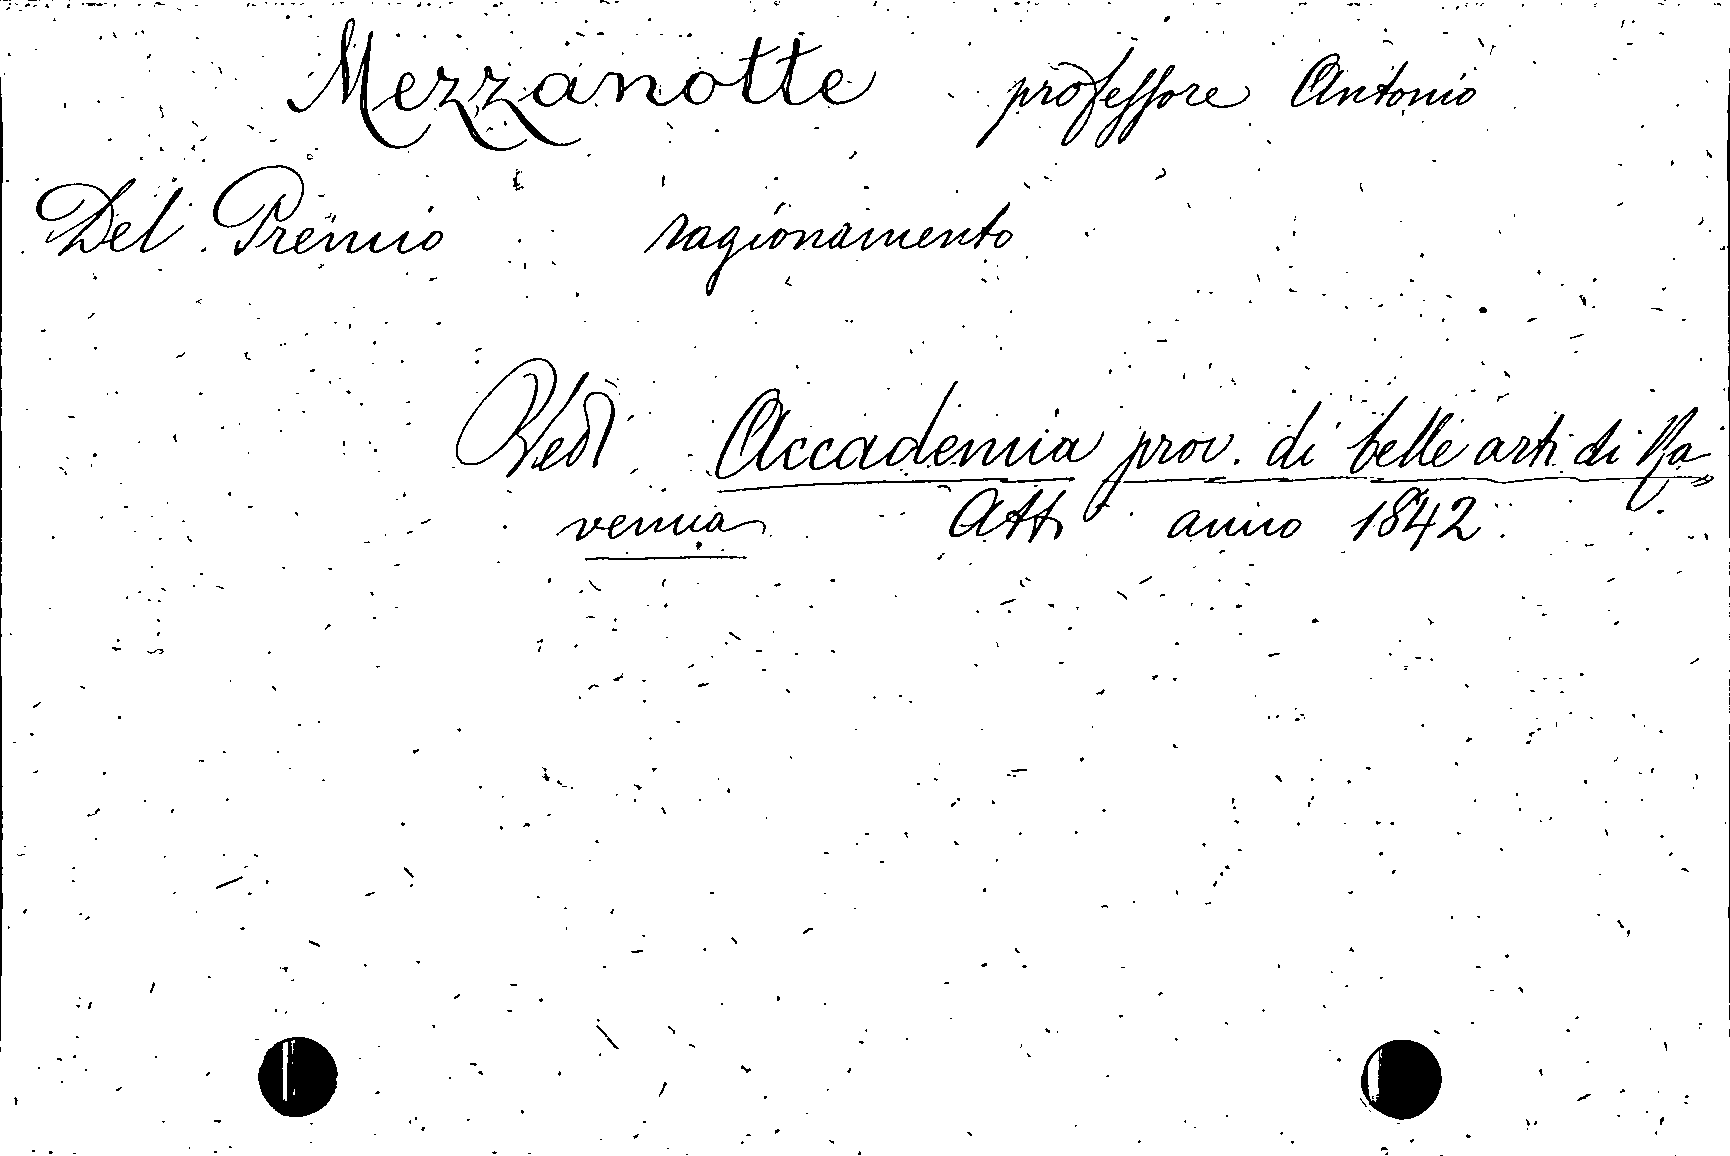 Mezzanotte professore Antonio
Del Premio ragionamento
Vedi Accademia prov. di belle arti di Ra
venna Atti anno 1842.